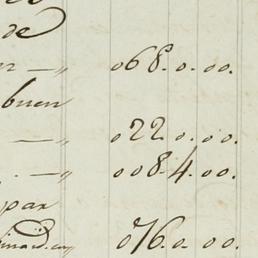 de
n — „ 068.0.00.
buen
— „ 022.0.00.
. — „ 008.4.00.
par
076.0.00